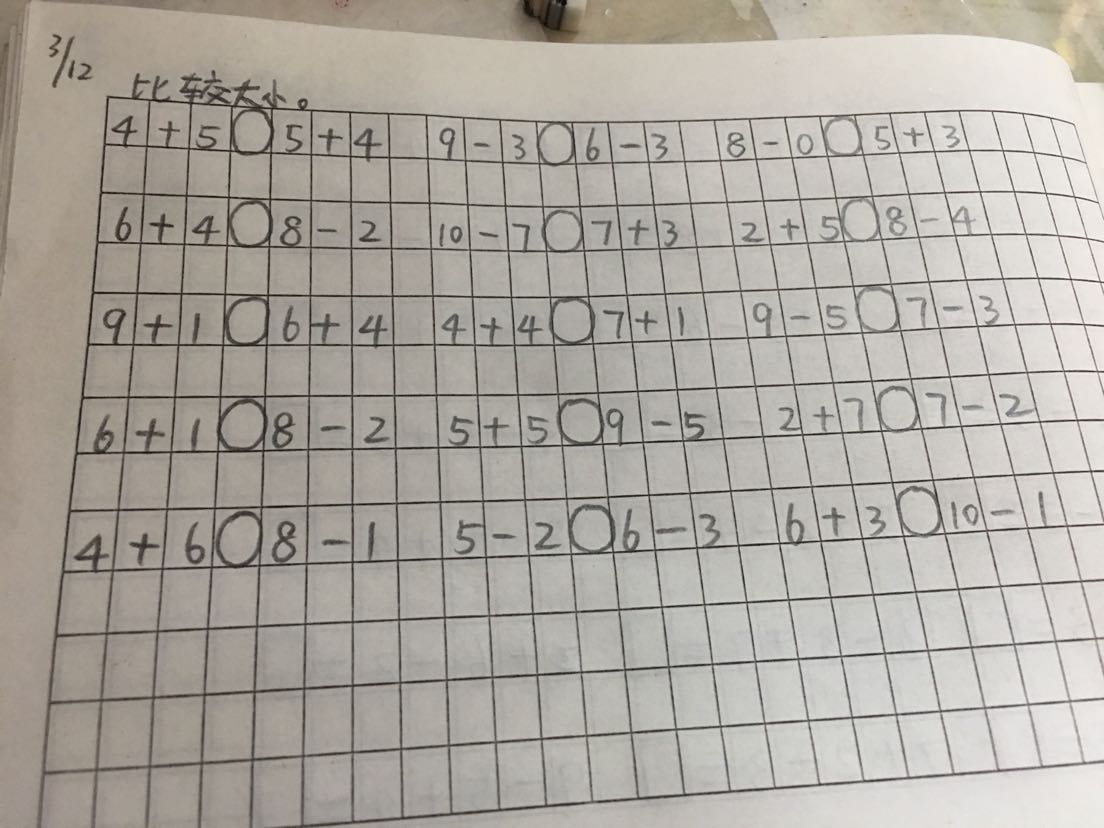 3/12
比较大小。
4+5○5+4 9-3○6-3 8-0○5+3
6+4○8-2 10-7○7+3 2+5○8-4
9+1○6+4 4+4○7+1 9-5○7-3
6+1○8-2 5+5○9-5 2+7○7-2
4+6○8-1 5-2○6-3 6+3○10-1